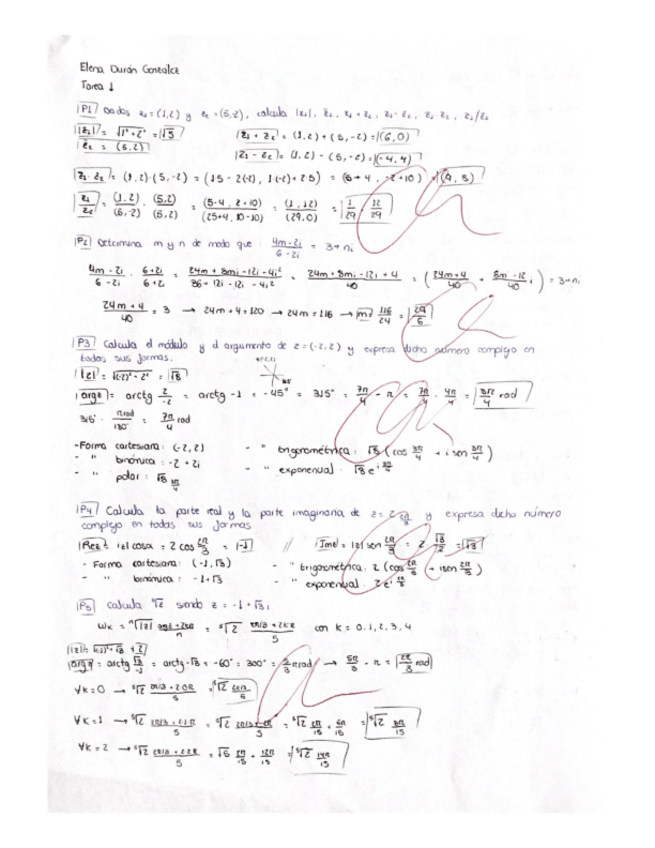 Elena Durán González
Tarea 1
P1 Dados z₁ = (1,2) y z₂ = (5,-2), calcula |z₁|, z̄₂, z₁ + z₂, z₁ - z₂, z₁ · z₂, z₁/z₂
|z₁| = √1² + 2² = √5
z̄₂ = (5,2)
z₁ + z₂ = (1,2) + (5,-2) = (6,0)
z₁ - z₂ = (1,2) - (5,-2) = (-4,4)
z₁ · z₂ = (1,2) · (5,-2) = (1·5 - 2·(-2), 1·(-2) + 2·5) = (5 + 4, -2 + 10) = (9, 8)
z₁/z₂ = (1,2)/(5,-2) · (5,2)/(5,2) = (5-4, 2+10)/(25+4, 10-10) = (1,12)/(29,0) = 1/29, 12/29
P2 Determina m y n de modo que: (4m - 2i)/(6 - 2i) = 3 + ni
(4m - 2i)/(6 - 2i) · (6 + 2i)/(6 + 2i) = (24m + 8mi - 12i - 4i²)/(36 + 12i - 12i - 4i²) = (24m + 8mi - 12i + 4)/40 = ((24m + 4)/40 + (8m - 12)/40 i) = 3 + ni
(24m + 4)/40 = 3 → 24m + 4 = 120 → 24m = 116 → m = 116/24 = 29/6
P3 Calcula el módulo y el argumento de z = (-2,2) y expresa dicho número complejo en
todas sus formas.
|z| = √(-2)² + 2² = √8
arg z = arctg 2/-2 = arctg -1 = -45° = 315° = 7π/4 - π = 7π/4 - 4π/4 = 3π/4 rad
315° · π rad/180° = 7π/4 rad
- Forma cartesiana: (-2,2)
- " binómica: -2 + 2i
- " polar: √8 3π/4
- " trigonométrica: √8 (cos 3π/4 + i sen 3π/4)
- " exponencial: √8 e^i 3π/4
P4 Calcula la parte real y la parte imaginaria de z = 2 2π/3 y expresa dicho número
complejo en todas sus formas
Re z = |z| cos α = 2 cos 2π/3 = -1 // Im z = |z| sen 2π/3 = 2 √3/2 = √3
- Forma cartesiana: (-1, √3)
- " binómica: -1 + √3 i
- " trigonométrica: 2 (cos 2π/3 + i sen 2π/3)
- " exponencial: 2 e^i 2π/3
P5 Calcula ⁵√z siendo z = -1 + √3 i
Wk = ⁿ√|z| (arg z + 2kπ)/n = ⁵√2 (2π/3 + 2kπ)/5 con k = 0, 1, 2, 3, 4
|z| = √(-1)² + √3 = 2
arg z = arctg √3/-1 = arctg -√3 = -60° = 300° = 5/3 π rad → 5π/3 - π = 2π/3 rad
∀k = 0 → ⁵√2 (2π/3 + 2·0π)/5 = ⁵√2 (2π/3)/5
∀k = 1 → ⁵√2 (2π/3 + 2·1π)/5 = ⁵√2 (2π/3 + 2π)/5 = ⁵√2 2π/15 + 6π/15 = ⁵√2 8π/15
∀k = 2 → ⁵√2 (2π/3 + 2·2π)/5 = √5 2π/15 + 12π/15 = ⁵√2 14π/15